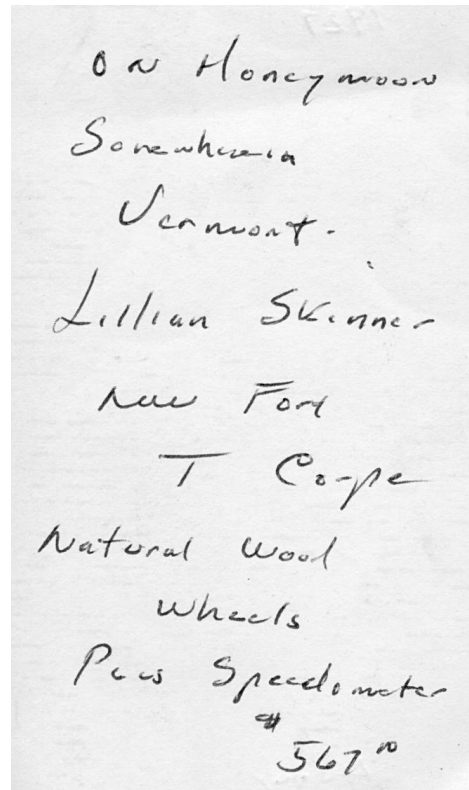 On Honeymoon
Somewhere in
Vermont.
Lillian Skinner
New Ford
T Coupe
Natural Wood
Wheels
Plus Speedometer
$567.00